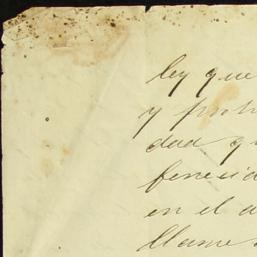 ley que
y
dad q
fenecid
en el d
llame